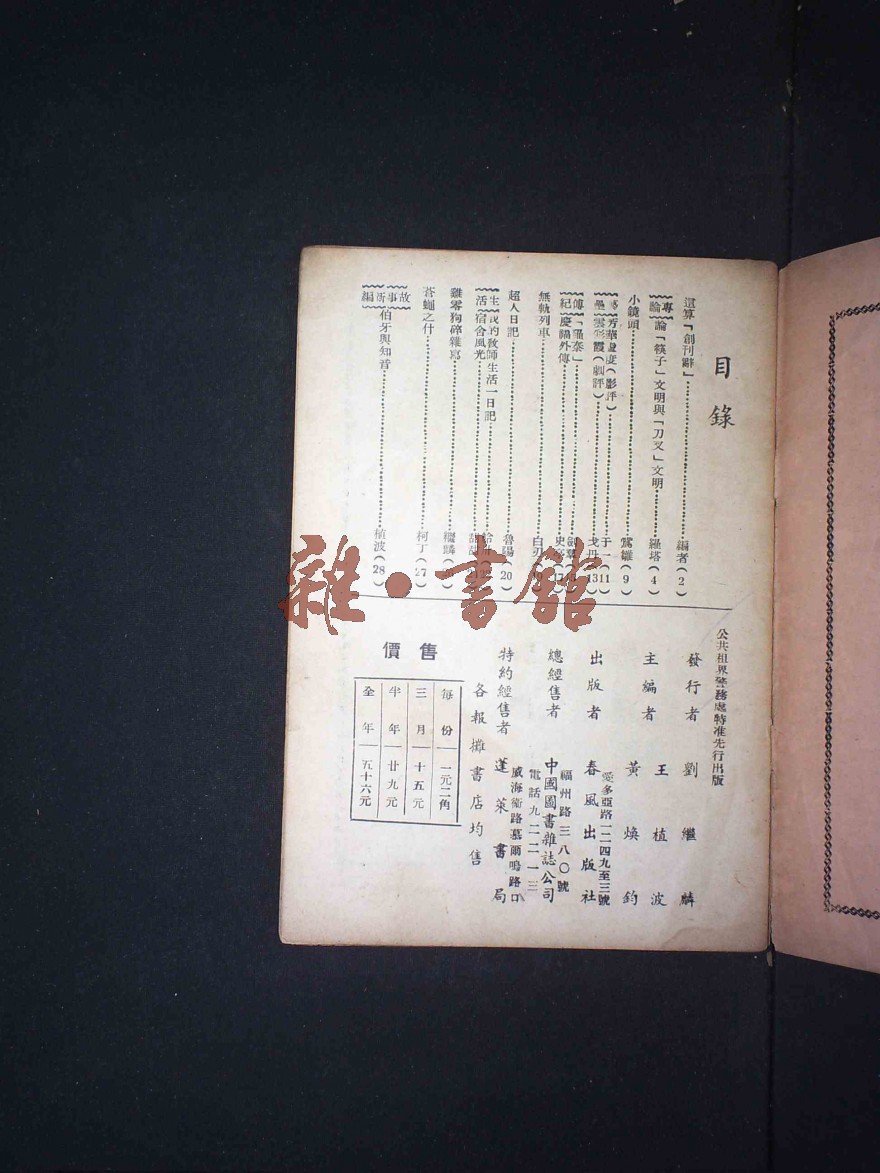 目錄
還算「創刊辭」編者(2)
專論 論「筷子」文明與「刀叉」文明羅塔(4)
小鏡頭鴛雛(9)
芳華虛度(影評)于一(11)
雲彩霞(劇評)戈丹(13)
傳紀 「羅秦」
慶禍外傳史
無軌列車白刃
超人日記魯陽(20)
生活 我的教師生活一日記
宿舍風光
雞零狗碎雜寫繼麟
蒼蠅之什柯丁(27)
故事新編 伯牙與知音植波(28)
公共租界警務處特准先行出版
發行者 劉繼麟
主編者 王植波
黃煥鈞
出版者 春風出版社
愛多亞路一二四九至三號
總經售者 中國圖書雜誌公司
福州路三八〇號
電話九二二一三
特約經售者 蓬萊書局
威海衛路慕爾鳴路口
各報攤書店均售
售價
每份 一元二角
三月 十五元
半年 廿九元
全年 五十六元
雜·書館